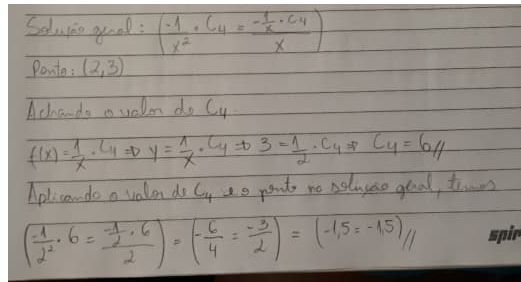 Solução geral: (-1/x² · C₄ = -1/x · C₄ / x)
Ponto: (2,3)
Achando o valor de C₄.
f(x) = 1/x · C₄ ⇒ y = 1/x · C₄ ⇒ 3 = 1/2 · C₄ ⇒ C₄ = 6//
Aplicando o valor de C₄ e o ponto na solução geral, temos
(-1/2² · 6 = -1/2 · 6 / 2) = (-6/4 = -3/2) = (-1,5 = -1,5)//
spir